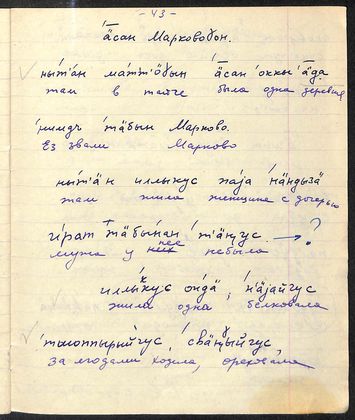 - 43 -
а̄сан Марковоɓон.
ны́та́н ма́тт'ӧɓын а̄сан о́ккы а̄да
там в тайге была одна деревня
нимдъ та̄бын Марково.
Её звали Марково
ны́та̄н иллыкус па́ja на̄ндызӓ
там жила женщина с дочерью
и́рат та̄бы́нан та̄ңус. → ?
мужа у них нее не было
иллы́кус о́нда̄, н'а̄jайгус
жила одна белковала
тюоппырыйгус, сва̄ңыйгус
за ягодами ходила, орехова́ла